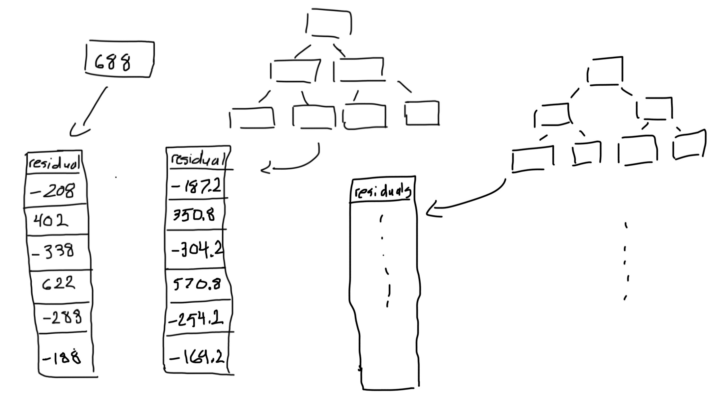 688
residual
-208
402
-338
622
-288
-188
residual
-187.2
350.8
-304.2
570.8
-254.2
-169.2
residuals